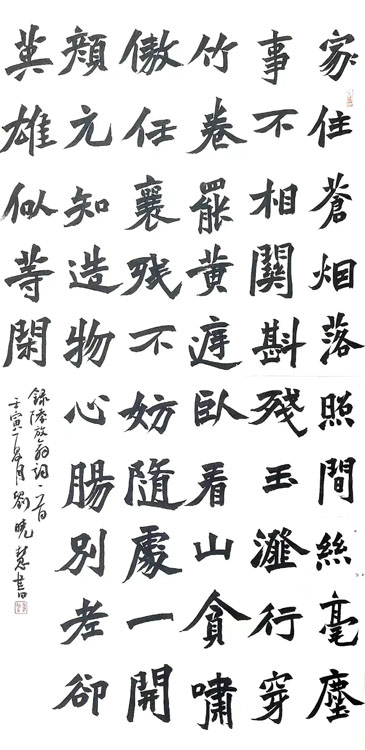 家住蒼烟落照間絲毫塵
事不相關斟殘玉瀣行穿
竹卷罷黄庭臥看山貪嘯
傲任襄残不妨隨處一開
顔元知造物心腸別老卻
英雄似等閑
録陸放翁詞一首
壬寅 月劉曉慧書